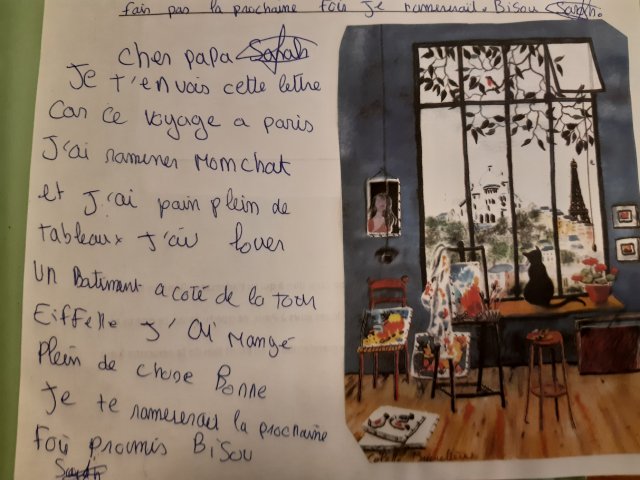 fais pas la prochaine fois je ramenerail. Bisou Sarah.
cher papa Sarah
Je t'envois cette lettre
Car ce voyage a paris
J'ai ramener Momchat
et J'ai pain plein de
tableaux J'ai louer
UN Batiment a coté de la tour
Eiffelle J'ai Mangé
Plein de chose Bonne
Je te ramererail la prochaine
Foi promis Bisou
Sarah